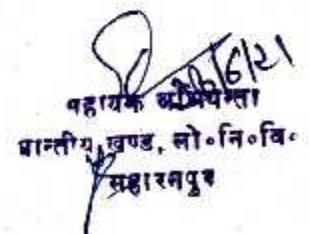 /6/21
सहायक अभियन्ता
प्रान्तीय खण्ड, लो०नि०वि०
सहारनपुर